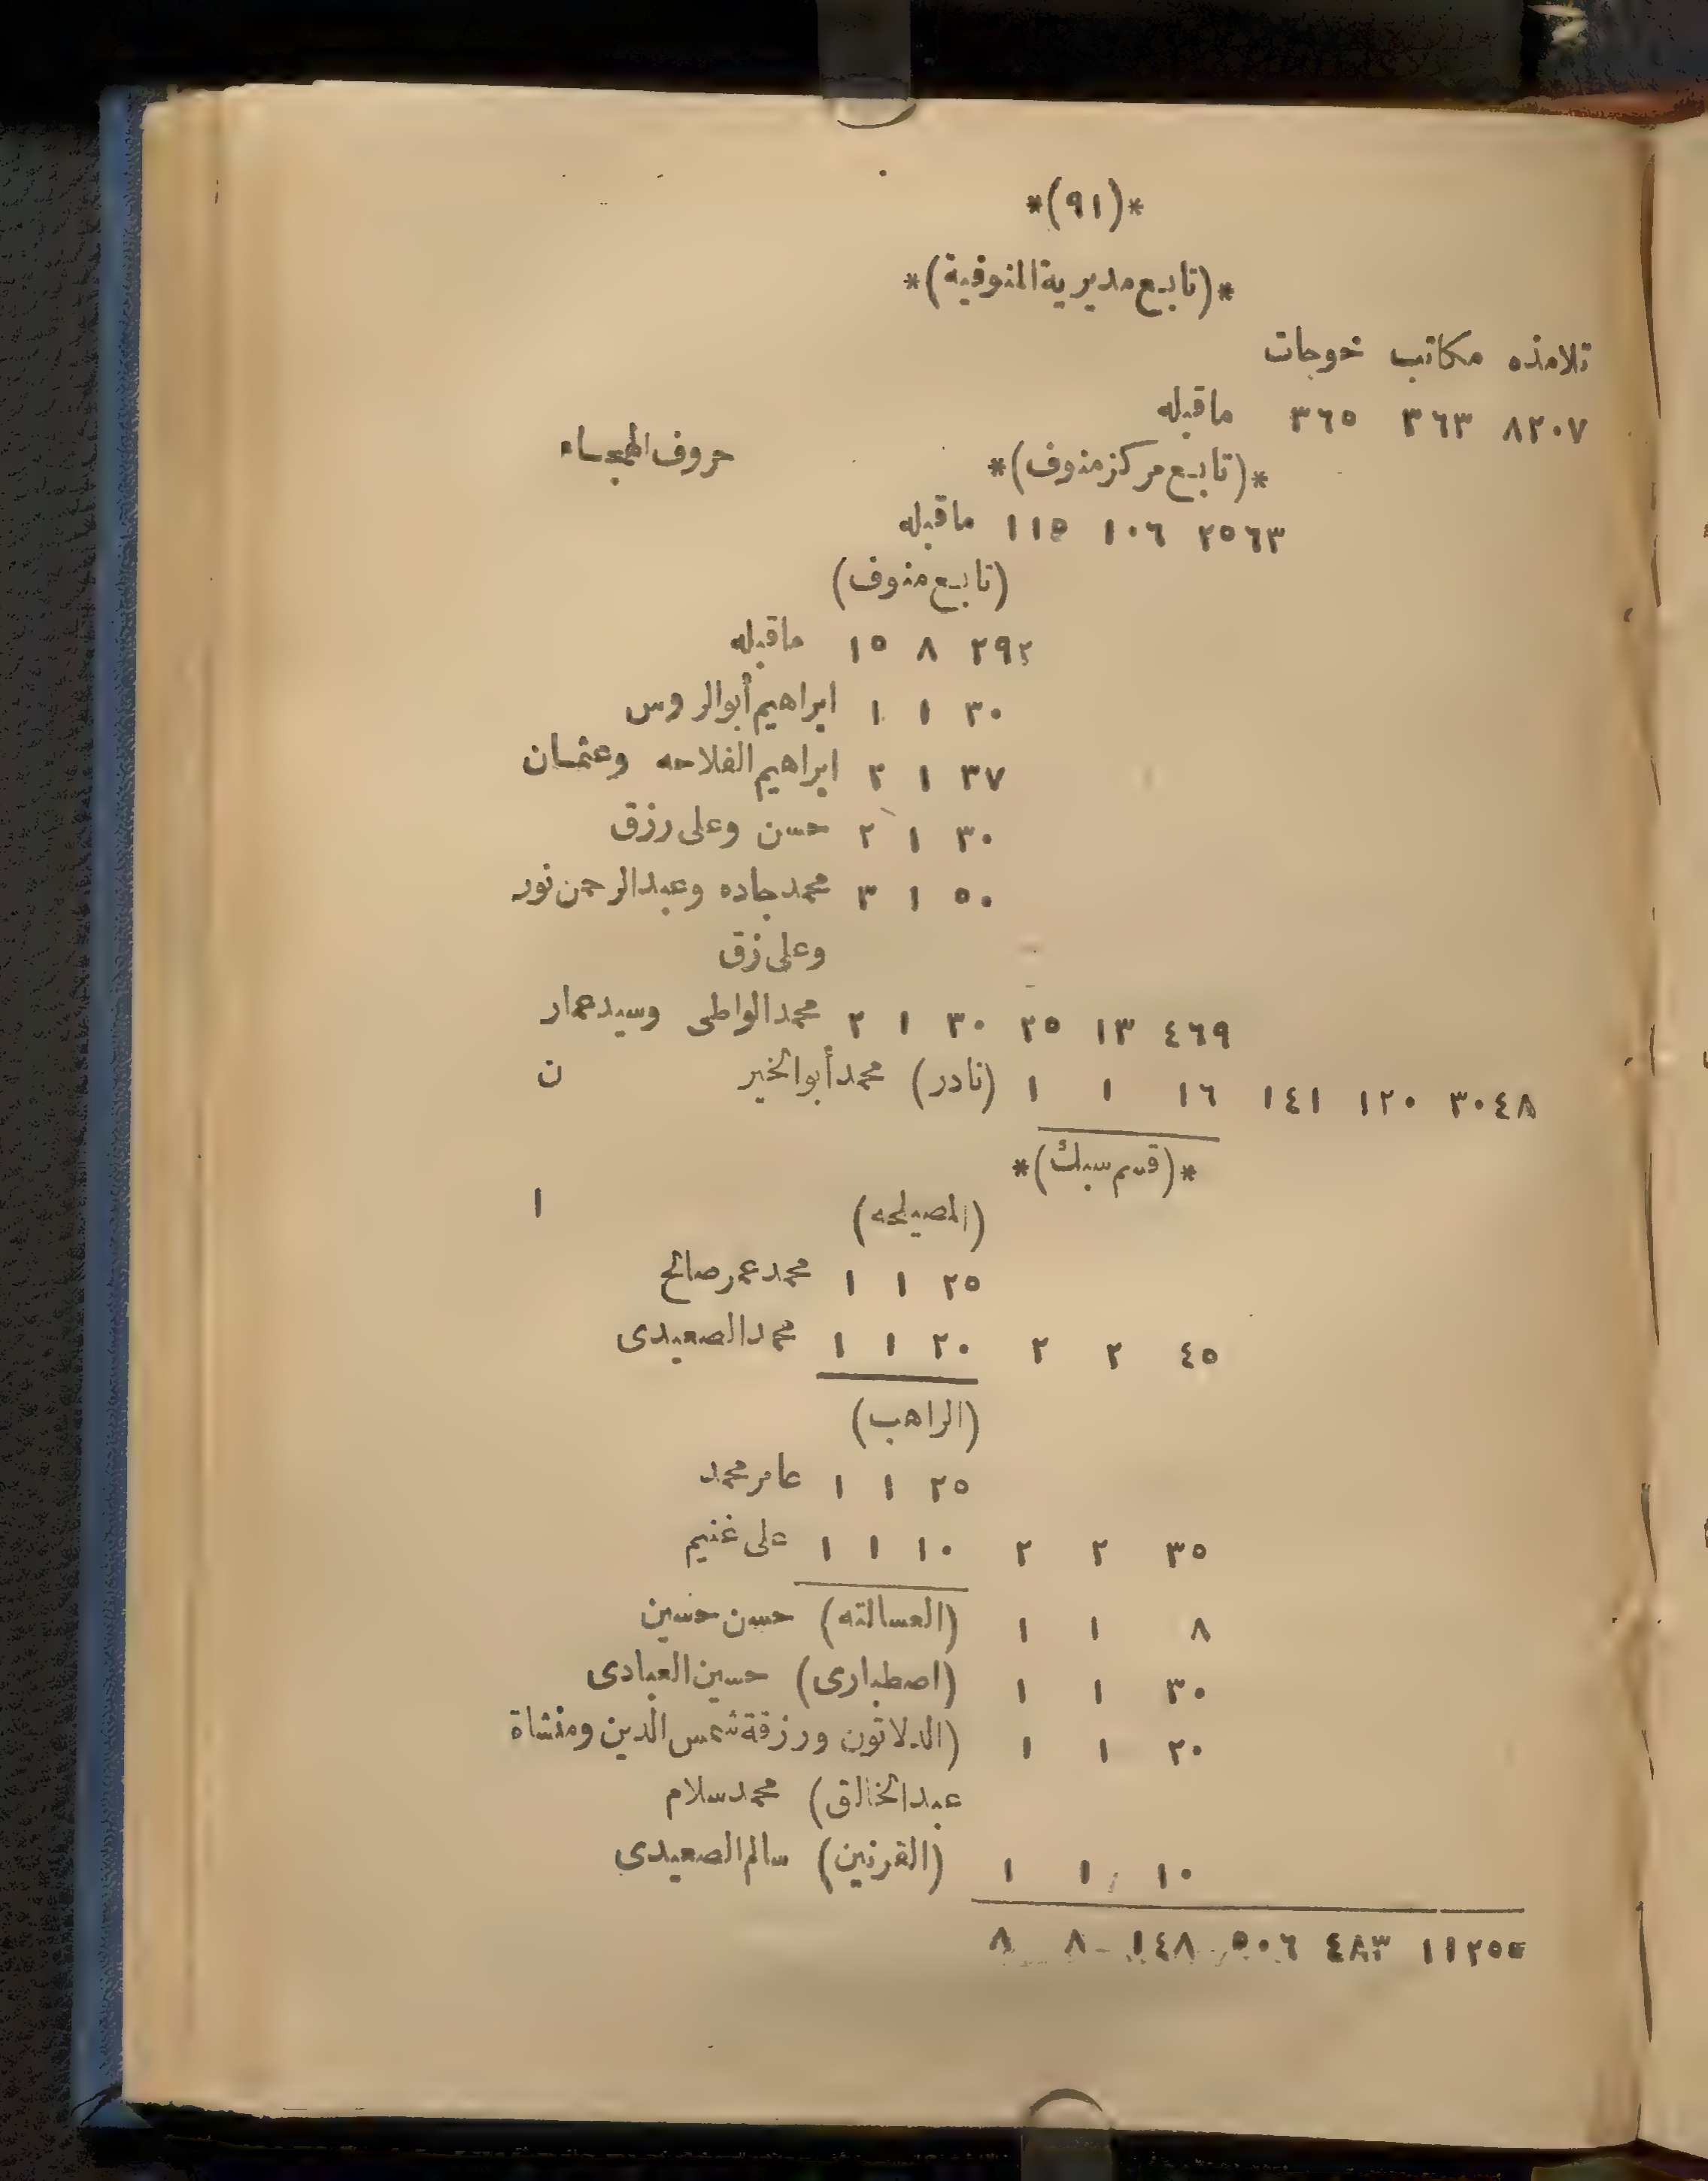 *(٩١)*
*(تابع مديرية المنوفية)*
تلامذه مكاتب خوجات
٨٢٠٧ ٣٦٣ ٣٦٥ ماقبله
*(تابع مركز منوف)* حروف الهجاء
٢٥٦٣ ١٠٦ ١١٥ ماقبله
(تابع منوف)
٢٩٢ ٨ ١٥ ماقبله
٣٠ ١ ١ ابراهيم أبوالروس
٣٧ ١ ٢ ابراهيم الفلاحه وعثمان
٣٠ ١ ٢ حسن وعلى رزق
٥٠ ١ ٣ محمد جاده وعبدالرحمن نور
وعلى زق
٤٦٩ ١٣ ٢٥ ٣٠ ١ ٢ محمد الواطى وسيد عمار
٣٠٤٨ ١٢٠ ١٤١ ١٦ ١ ١ (نادر) محمد أبوالخير ن
*(قسم سبك)*
(المصيلحه) ا
٢٥ ١ ١ محمد عمر صالح
٤٥ ٢ ٢ ٢٠ ١ ١ محمد الصعيدى
(الراهب)
٢٥ ١ ١ عامر محمد
٣٥ ٢ ٢ ١٠ ١ ١ على غنيم
٨ ١ ١ (العسالته) حسن حسين
٣٠ ١ ١ (اصطبارى) حسين العبادى
٢٠ ١ ١ (الدلاتون ورزقة شمس الدين ومنشاة
عبدالخالق) محمد سلام
١٠ ١ ١ (القرنين) سالم الصعيدى
١١٢٥٥ ٤٨٣ ٥٠٦ ١٤٨ ٨ ٨